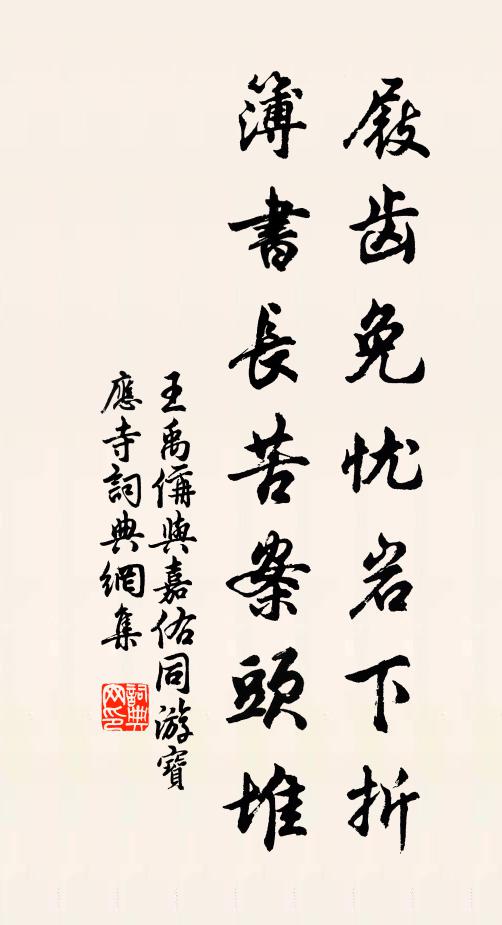 屐齿免忧岩下折
簿書長苦案頭堆
王禹偁與嘉佑同游寶
應寺詞典網集
詞典
网印